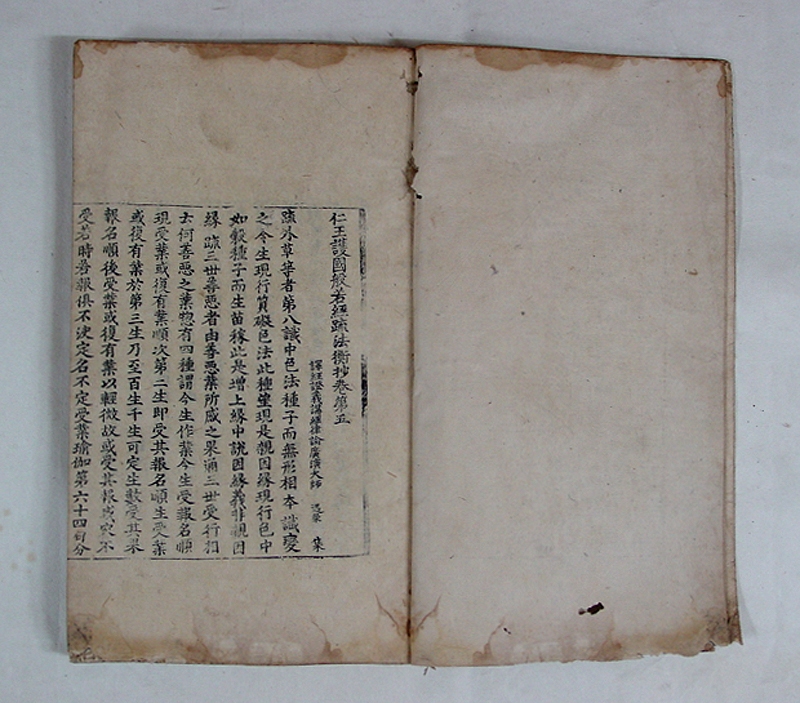 仁王護國般若經疏法衡抄卷第五
譯經證義講經律論廣演大師 遇榮 集
疏外草等者第八識中色法種子而無形相本識變
之今生現行質礙色法此種望現是親因緣現行色中
如穀種子而生苗稼此是增上緣中說因緣義非親因
緣疏三世善惡者由善惡業所感之果通三世受行相
云何善惡之業惣有四種謂今生作業今生受報名順
現受業或復有業順次第二生即受其報名順生受業
或復有業於第三生乃至百生千生可定生數受其果
報名順後受業或復有業以輕微故或受其報或定不
受若時若報俱不決定名不定受業瑜伽第六十四自分